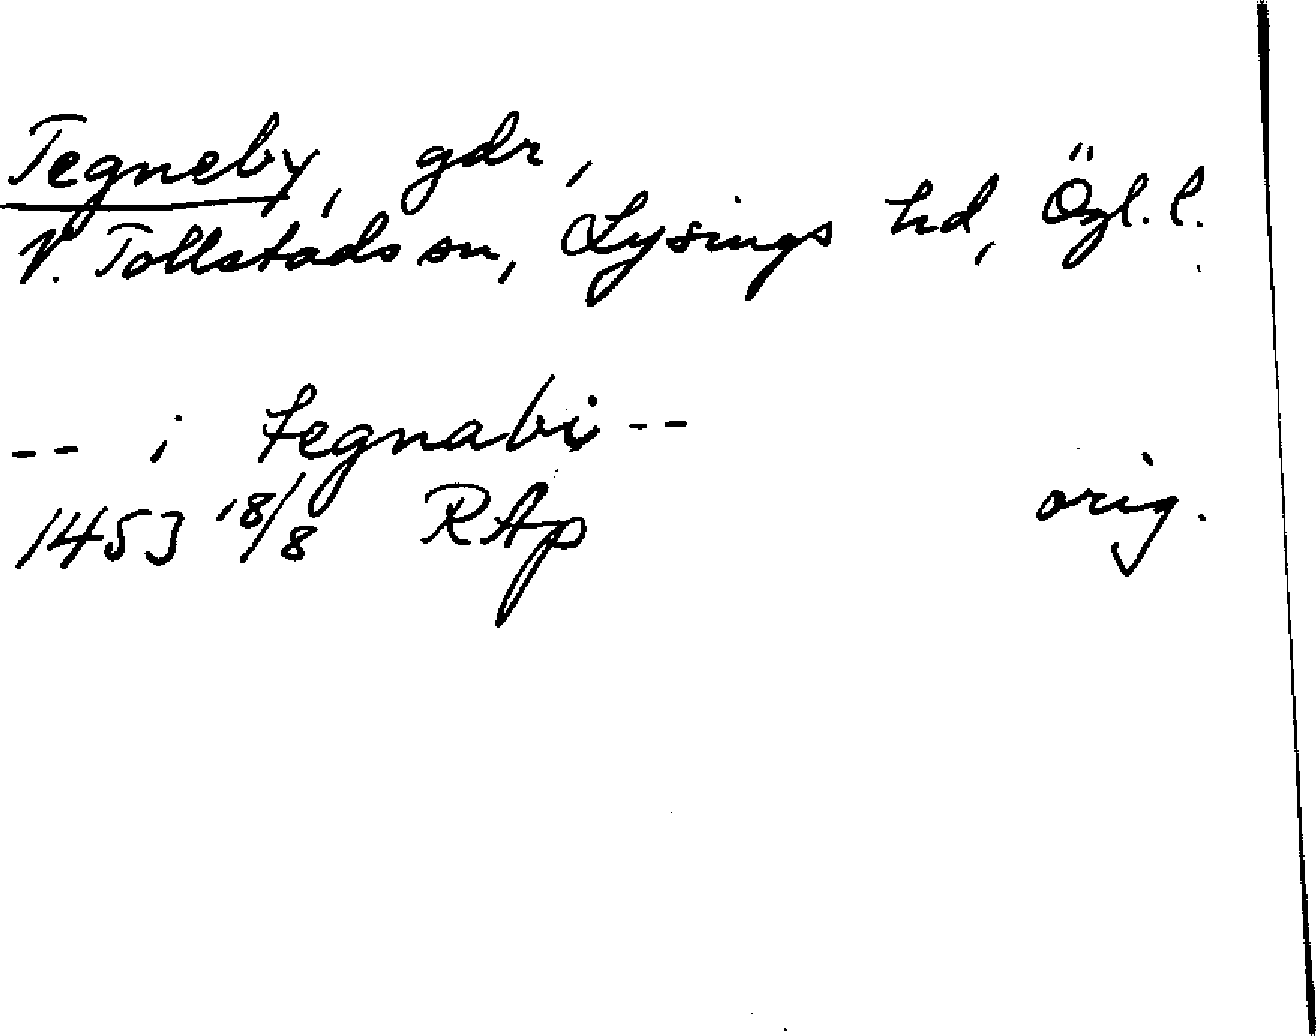 Tegneby, gdr,
V. Tollstads sn, Lysings hd, Ögl. l.
-- i tegnabi --
1453 18/8 RAp orig.